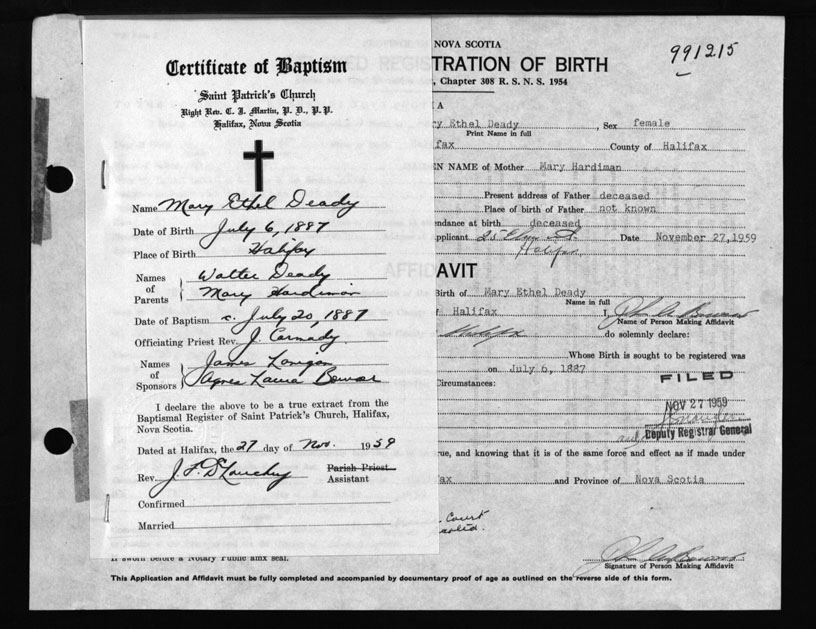 Certificate of Baptism
Saint Patrick's Church
Right Rev. C. J. Martin, P. D., P. P.
Halifax, Nova Scotia
Name Mary Ethel Deady
Date of Birth July 6, 1887
Place of Birth Halifax
Names of Parents Walter Deady
Mary Hardiman
Date of Baptism c. July 20, 1887
Officiating Priest Rev. J. Carmady
Names of Sponsors James Lanigan
Agnes Laura Bowser
I declare the above to be a true extract from the
Baptismal Register of Saint Patrick's Church, Halifax,
Nova Scotia.
Dated at Halifax, the 27 day of Nov. 1959
Rev. J. F. Parish Priest
Assistant
Confirmed
Married
NOVA SCOTIA
991215
TRATION OF BIRTH
, Chapter 308 R. S. N. S. 1954
A
ry Ethel Deady , Sex female
Print Name in full
fax County of Halifax
EN NAME of Mother Mary Hardiman
Present address of Father deceased
Place of birth of Father not known
endance at birth deceased
pplicant 25 Elm St. Date November 27, 1959
Halifax
AVIT
Birth of Mary Ethel Deady
Name in full
Halifax I,
Name of Person Making Affidavit
Halifax do solemnly declare:
Whose Birth is sought to be registered was
on July 6, 1887
FILED
Circumstances:
NOV 27 1959
Deputy Registrar General
rue, and knowing that it is of the same force and effect as if made under
fax and Province of Nova Scotia
Court
If sworn before a Notary Public affix seal.
Signature of Person Making Affidavit
This Application and Affidavit must be fully completed and accompanied by documentary proof of age as outlined on the reverse side of this form.